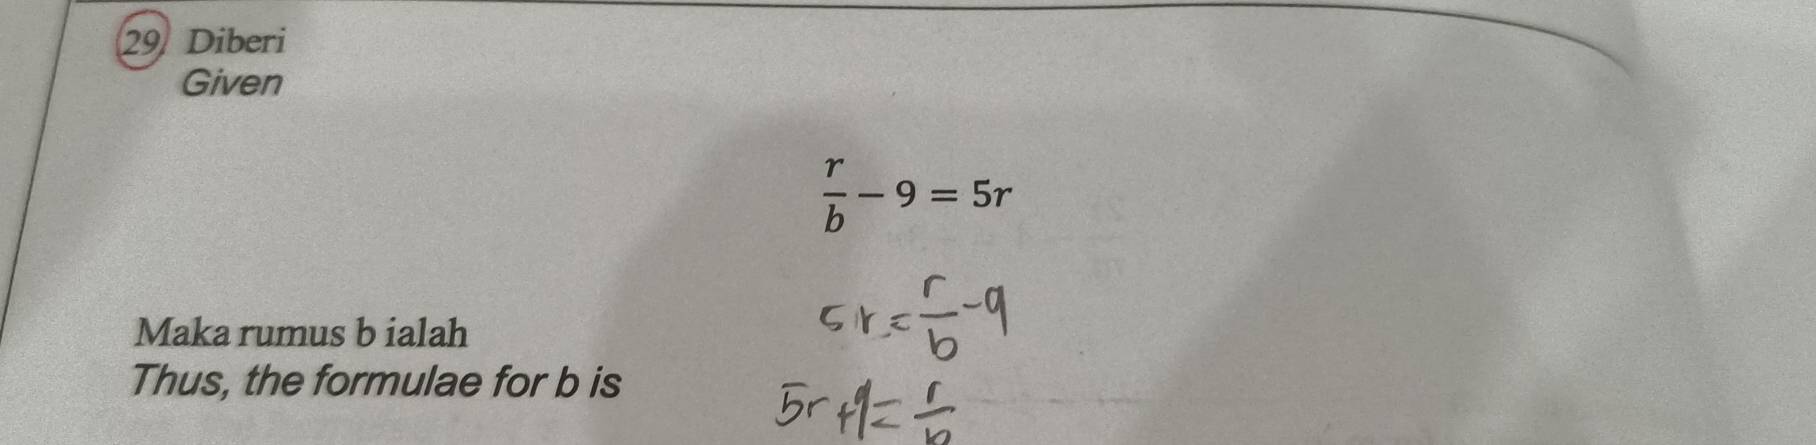 29. Diberi
Given
r/b − 9 = 5r
5r = r/b − 9
Maka rumus b ialah
Thus, the formulae for b is
5r + 9 = r/b